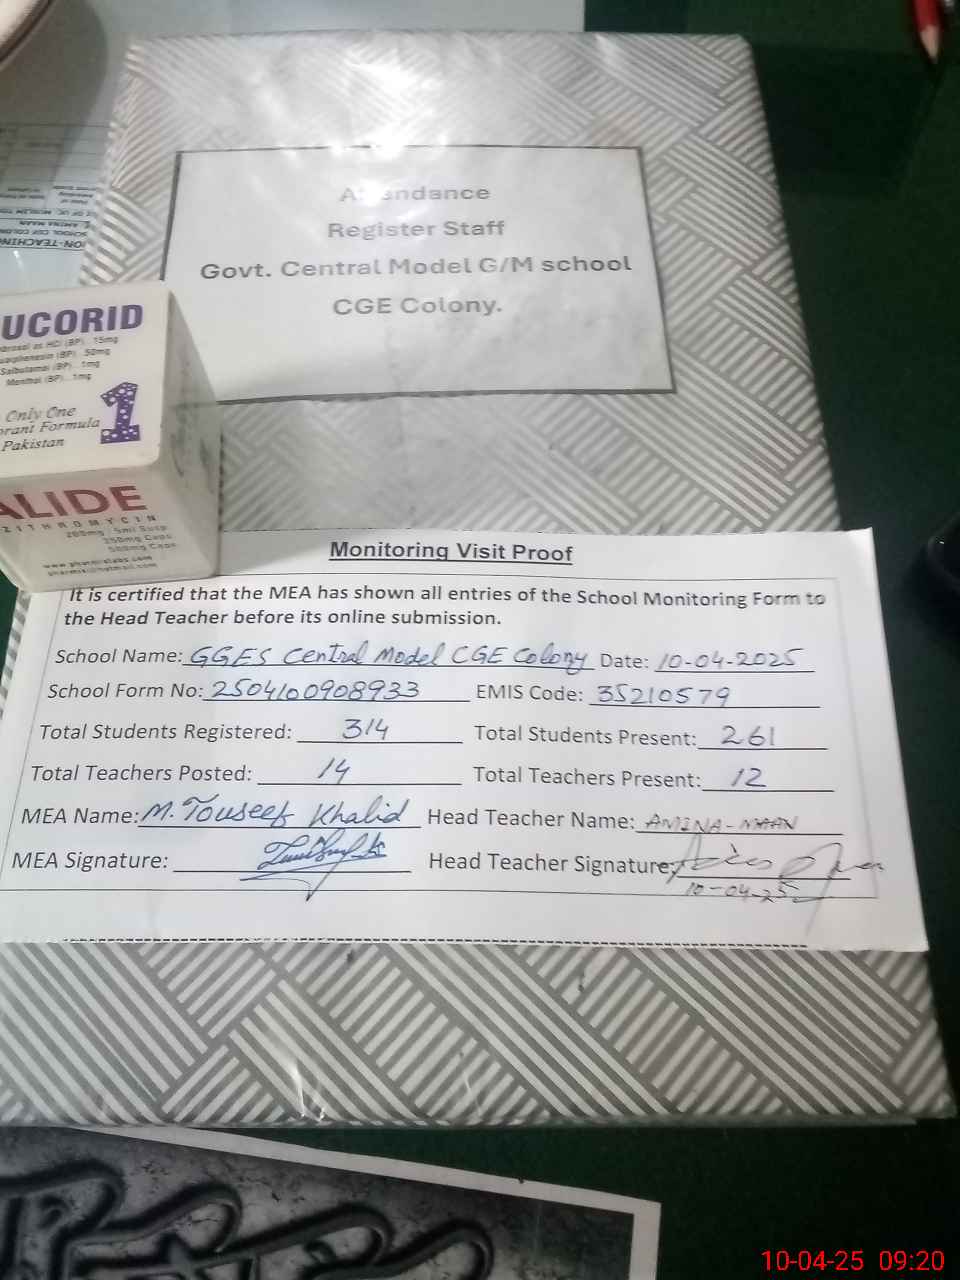 Attendance
Register Staff
Govt. Central Model G/M school
CGE Colony.
UCORID
HCl (BP) 15mg
(BP) 50mg
Salbutamol (BP) 1mg
Menthol (BP) 1mg
1
Only One
Formula
Pakistan
ALIDE
ZITHROMYCIN
200mg / 5ml Susp.
250mg Caps
500mg Caps
Monitoring Visit Proof
It is certified that the MEA has shown all entries of the School Monitoring Form to
the Head Teacher before its online submission.
School Name: GGES Central Model CGE Colony Date: 10-04-2025
School Form No: 2504100908933 EMIS Code: 35210579
Total Students Registered: 314 Total Students Present: 261
Total Teachers Posted: 14 Total Teachers Present: 12
MEA Name: M. Touseef Khalid Head Teacher Name: AMINA-MAAN
MEA Signature: Head Teacher Signature:
10-04-25
10-04-25 09:20